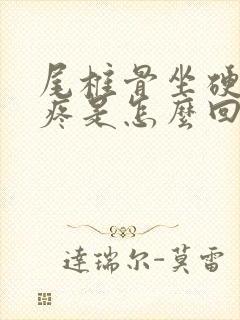 尾椎骨坐硬
疼是怎麼回
達瑞尔-莫雷